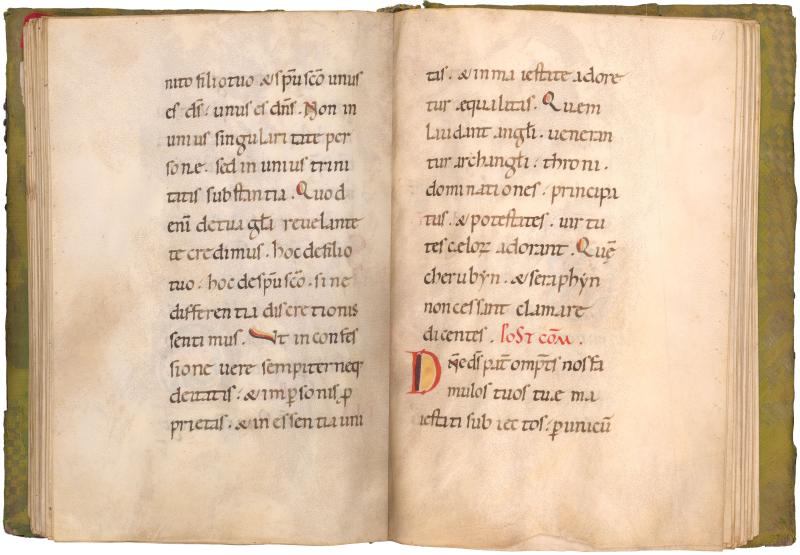 nito filio tuo & sp̄u sc̄o unus
es ds̄ · unus es dn̄s. Non in
unius singularitate per
sone · sed in unius trini
tatis substantia. Quod
eni̅ de tua gl̅a revelante
te credimus · hoc de filio
tuo · hoc de sp̄u sc̄o · sine
differentia discretionis
sentimus. Ut in confes
sione vere sempiterneq;
deitatis · & in p̲sonis p̲
prietas · & in essentia uni
69
tas · & in maiestate adore
tur æqualitas. Quem
laudant angl̅i · veneran
tur archangl̅i · throni ·
dominationes · principa
tus · & potestates · virtu
tes cęloꝝ adorant. Quę
cherubẏn · & seraphẏn
non cessant clamare
dicentes. Post cōm̅.
Dn̄e ds̄ pat̅ omp̄ts nos fa
mulos tuos tuæ ma
iestati subiectos · p̲ unicu̅